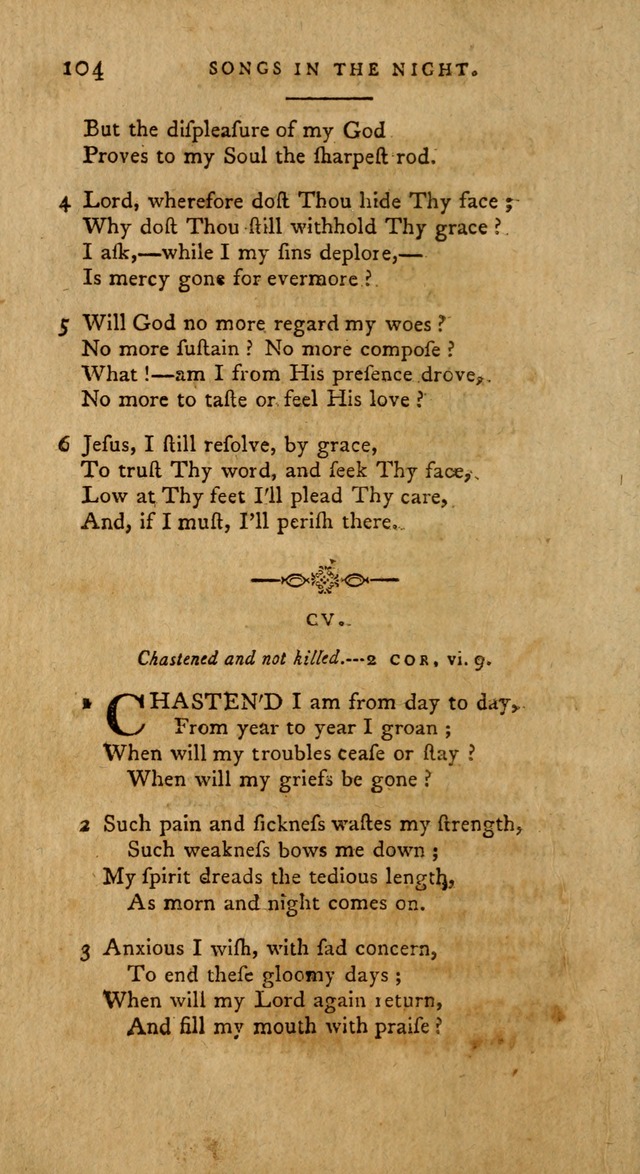 104 SONGS IN THE NIGHT.
But the diſpleaſure of my God
Proves to my Soul the ſharpeſt rod.
4 Lord, wherefore doſt Thou hide Thy face ;
Why doſt Thou ſtill withhold Thy grace ?
I aſk,—while I my ſins deplore,—
Is mercy gone for evermore ?
5 Will God no more regard my woes ?
No more ſuſtain ? No more compoſe ?
What !—am I from His preſence drove,
No more to taſte or feel His love ?
6 Jeſus, I ſtill reſolve, by grace,
To truſt Thy word, and ſeek Thy face,
Low at Thy feet I'll plead Thy care,
And, if I muſt, I'll periſh there.
CV.
Chastened and not killed.---2 COR, vi. 9.
1 CHASTEN'D I am from day to day,
From year to year I groan ;
When will my troubles ceaſe or ſtay ?
When will my griefs be gone ?
2 Such pain and ſickneſs waſtes my ſtrength,
Such weakneſs bows me down ;
My ſpirit dreads the tedious length,
As morn and night comes on.
3 Anxious I wiſh, with ſad concern,
To end theſe gloomy days ;
When will my Lord again return,
And fill my mouth with praiſe ?